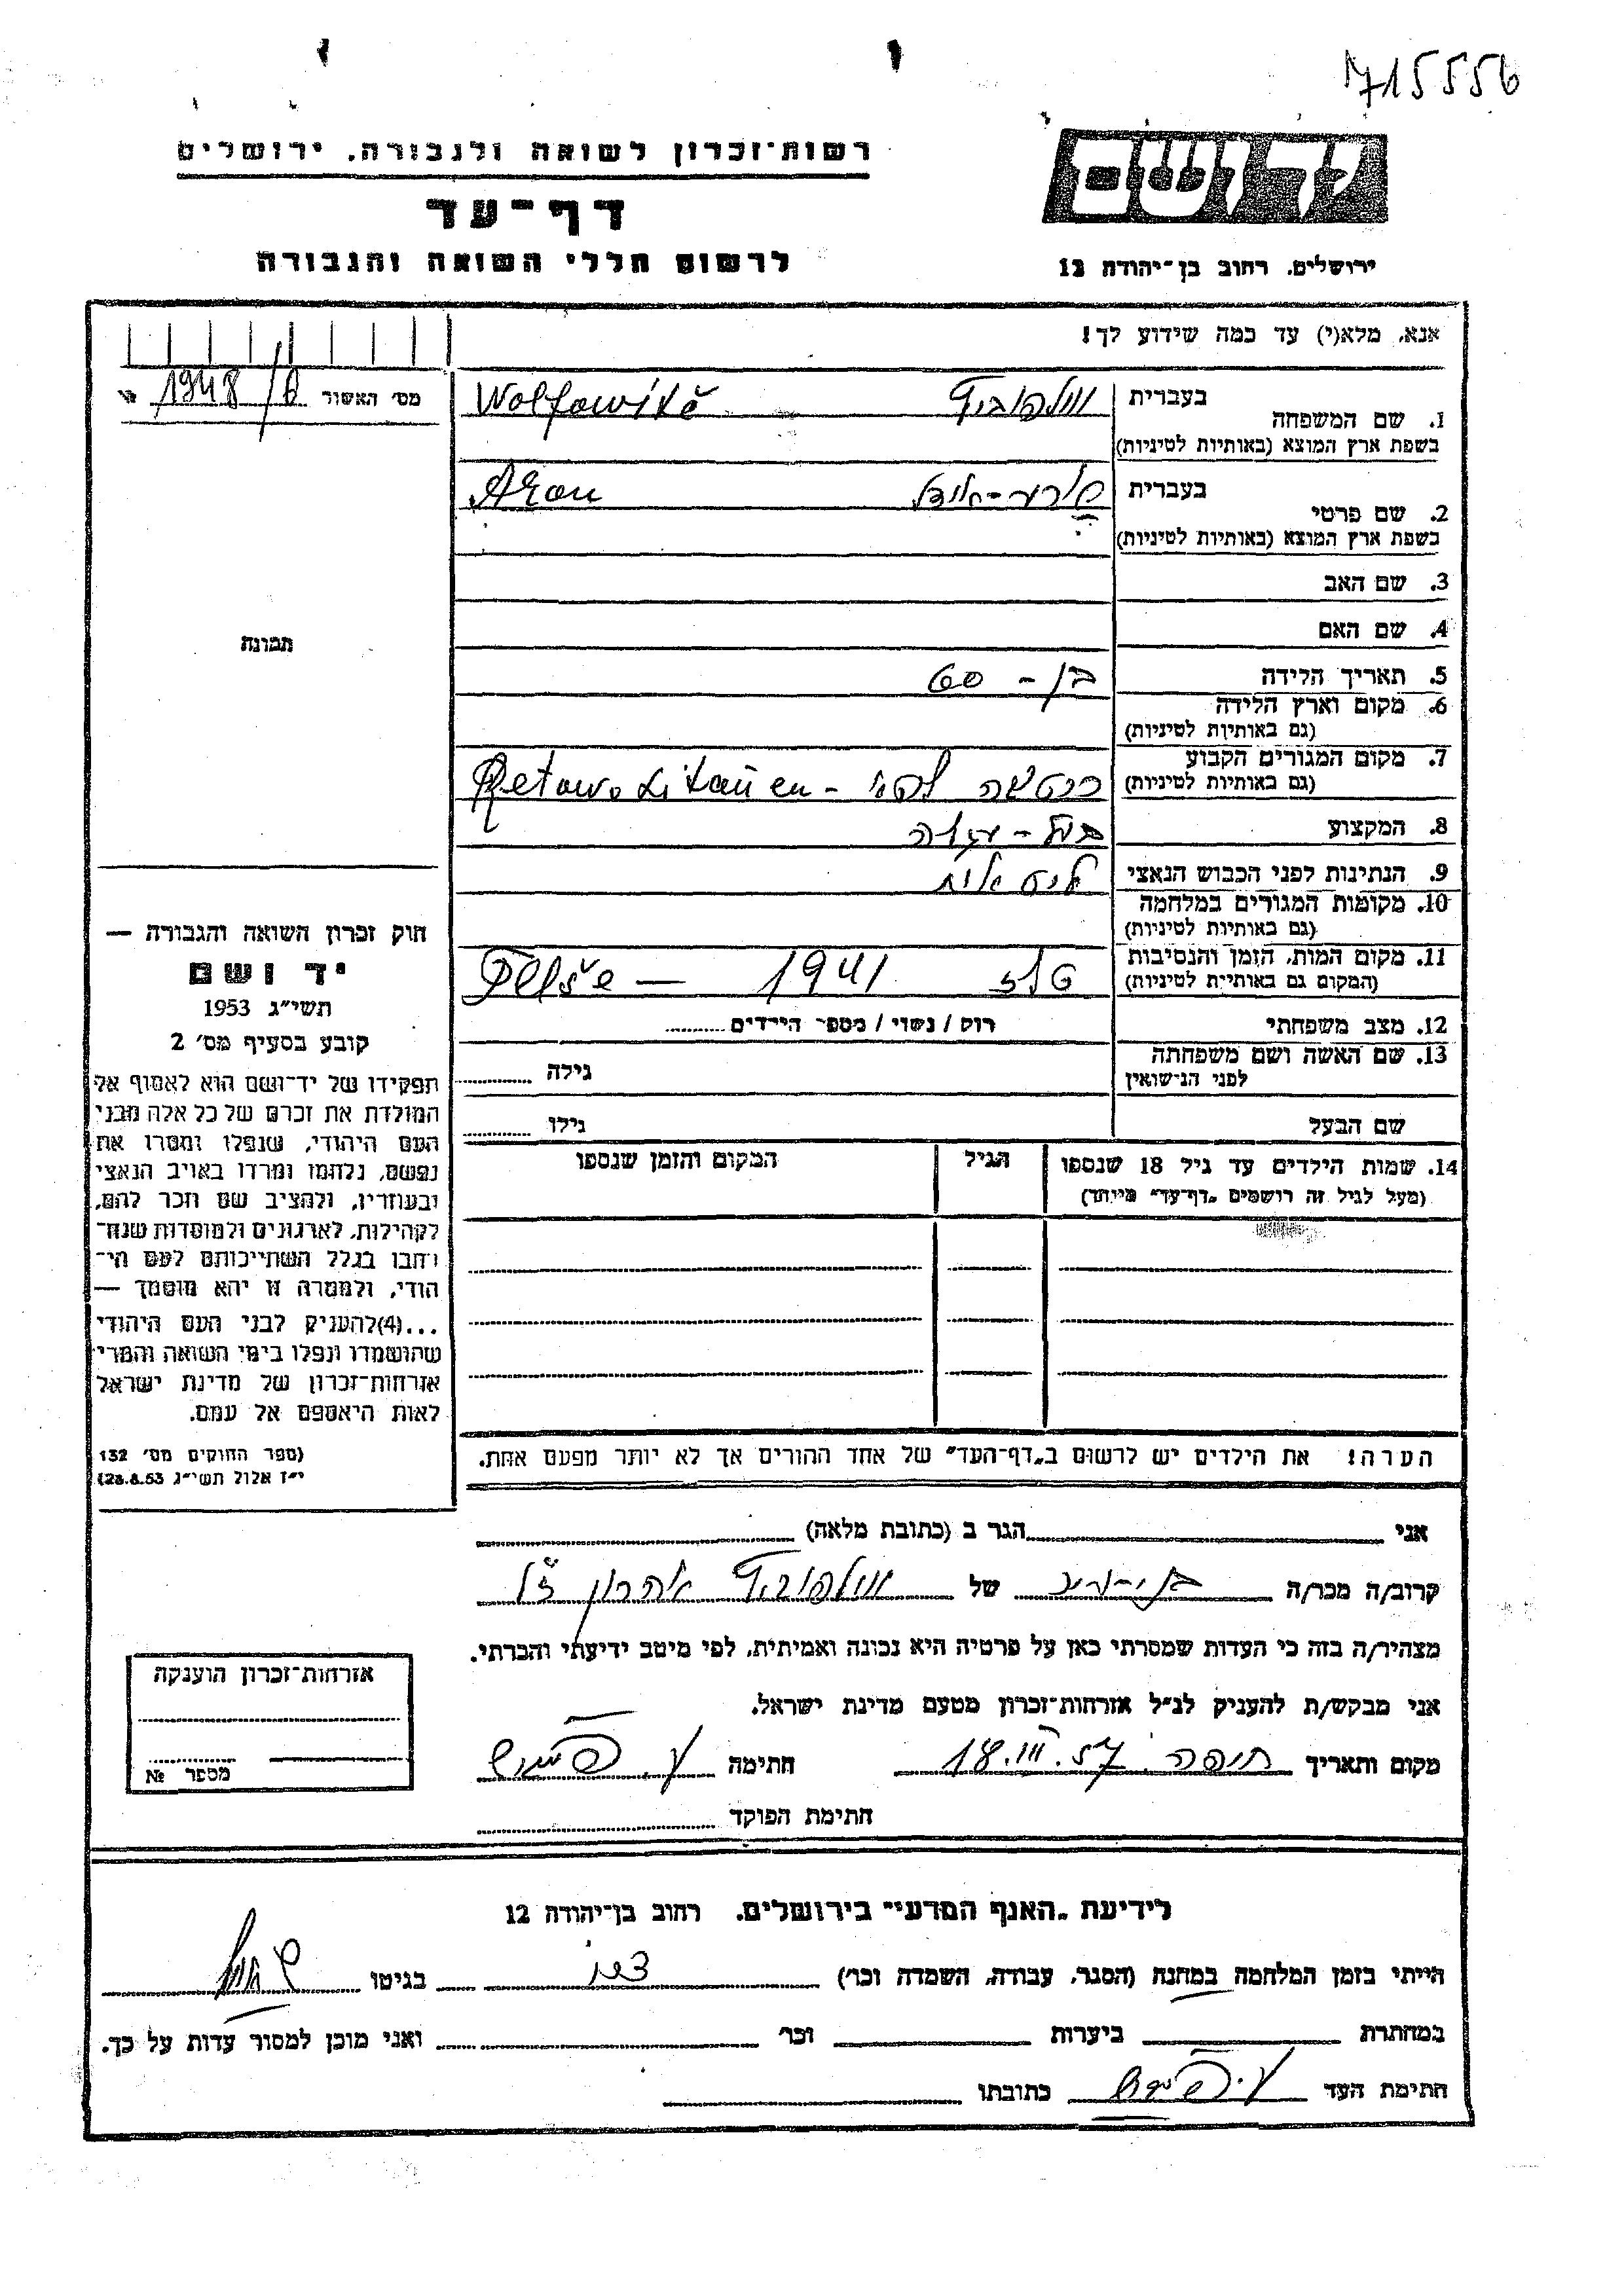 715556
רשות־זכרון לשואה ולגבורה, ירושלים
דף־עד
לרשום חללי השואה והגבורה
יד ושם
ירושלים, רחוב בן־יהודה 12
אנא, מלא(י) עד כמה שידוע לך!
מס׳ האשור 1948/6
1. שם המשפחה
בעברית וולפוביץ Wolfowitš
בשפת ארץ המוצא (באותיות לטיניות)
2. שם פרטי
בעברית Aron
בשפת ארץ המוצא (באותיות לטיניות)
3. שם האב
4. שם האם
תמונה
5. תאריך הלידה בן - 60
6. מקום וארץ הלידה
(גם באותיות לטיניות)
7. מקום המגורים הקבוע
(גם באותיות לטיניות) Retowo Litauen -
8. המקצוע
9. הנתינות לפני הכבוש הנאצי ליטאית
10. מקומות המגורים במלחמה
(גם באותיות לטיניות)
11. מקום המות, הזמן והנסיבות
(המקום גם באותיות לטיניות) טלז 1941 — Telše
12. מצב משפחתי רוק / נשוי / מספר הילדים
13. שם האשה ושם משפחתה
לפני הנישואין גילה
שם הבעל גילו
14. שמות הילדים עד גיל 18 שנספו
(מעל לגיל זה רושמים „דף־עד״ מיוחד)
הגיל
המקום והזמן שנספו
הערה! את הילדים יש לרשום ב„דף־העד״ של אחד ההורים אך לא יותר מפעם אחת.
חוק זכרון השואה והגבורה —
יד ושם
תשי״ג 1953
קובע בסעיף מס׳ 2
תפקידו של יד־ושם הוא לאסוף אל
המולדת את זכרם של כל אלה מבני
העם היהודי, שנפלו ומסרו את
נפשם, נלחמו ומרדו באויב הנאצי
ובעוזריו, ולהציב שם וזכר להם,
לקהילות, לארגונים ולמוסדות שנח־
רבו בגלל השתייכותם לעם הי־
הודי, ולמטרה זו יהא מוסמך —
...(4)להעניק לבני העם היהודי
שהושמדו ונפלו בימי השואה והמרי
אזרחות־זכרון של מדינת ישראל
לאות היאספם אל עמם.
(ספר החוקים מס׳ 132
י״ז אלול תשי״ג 28.8.53)
אני הגר ב (כתובת מלאה)
קרוב/ה מכר/ה של וולפוביץ אהרון ז״ל
מצהיר/ה בזה כי העדות שמסרתי כאן על פרטיה היא נכונה ואמיתית, לפי מיטב ידיעתי והכרתי.
אני מבקש/ת להעניק לנ״ל אזרחות־זכרון מטעם מדינת ישראל.
מקום ותאריך חיפה 18.III.57 חתימה
חתימת הפוקד
אזרחות־זכרון הוענקה
מספר №
לידיעת „האגף המדעי״ בירושלים, רחוב בן־יהודה 12
הייתי בזמן המלחמה במחנה (הסגר, עבודה, השמדה וכו׳) בגיטו
במחתרת ביערות וכו׳ ואני מוכן למסור עדות על כך.
חתימת העד כתובתו